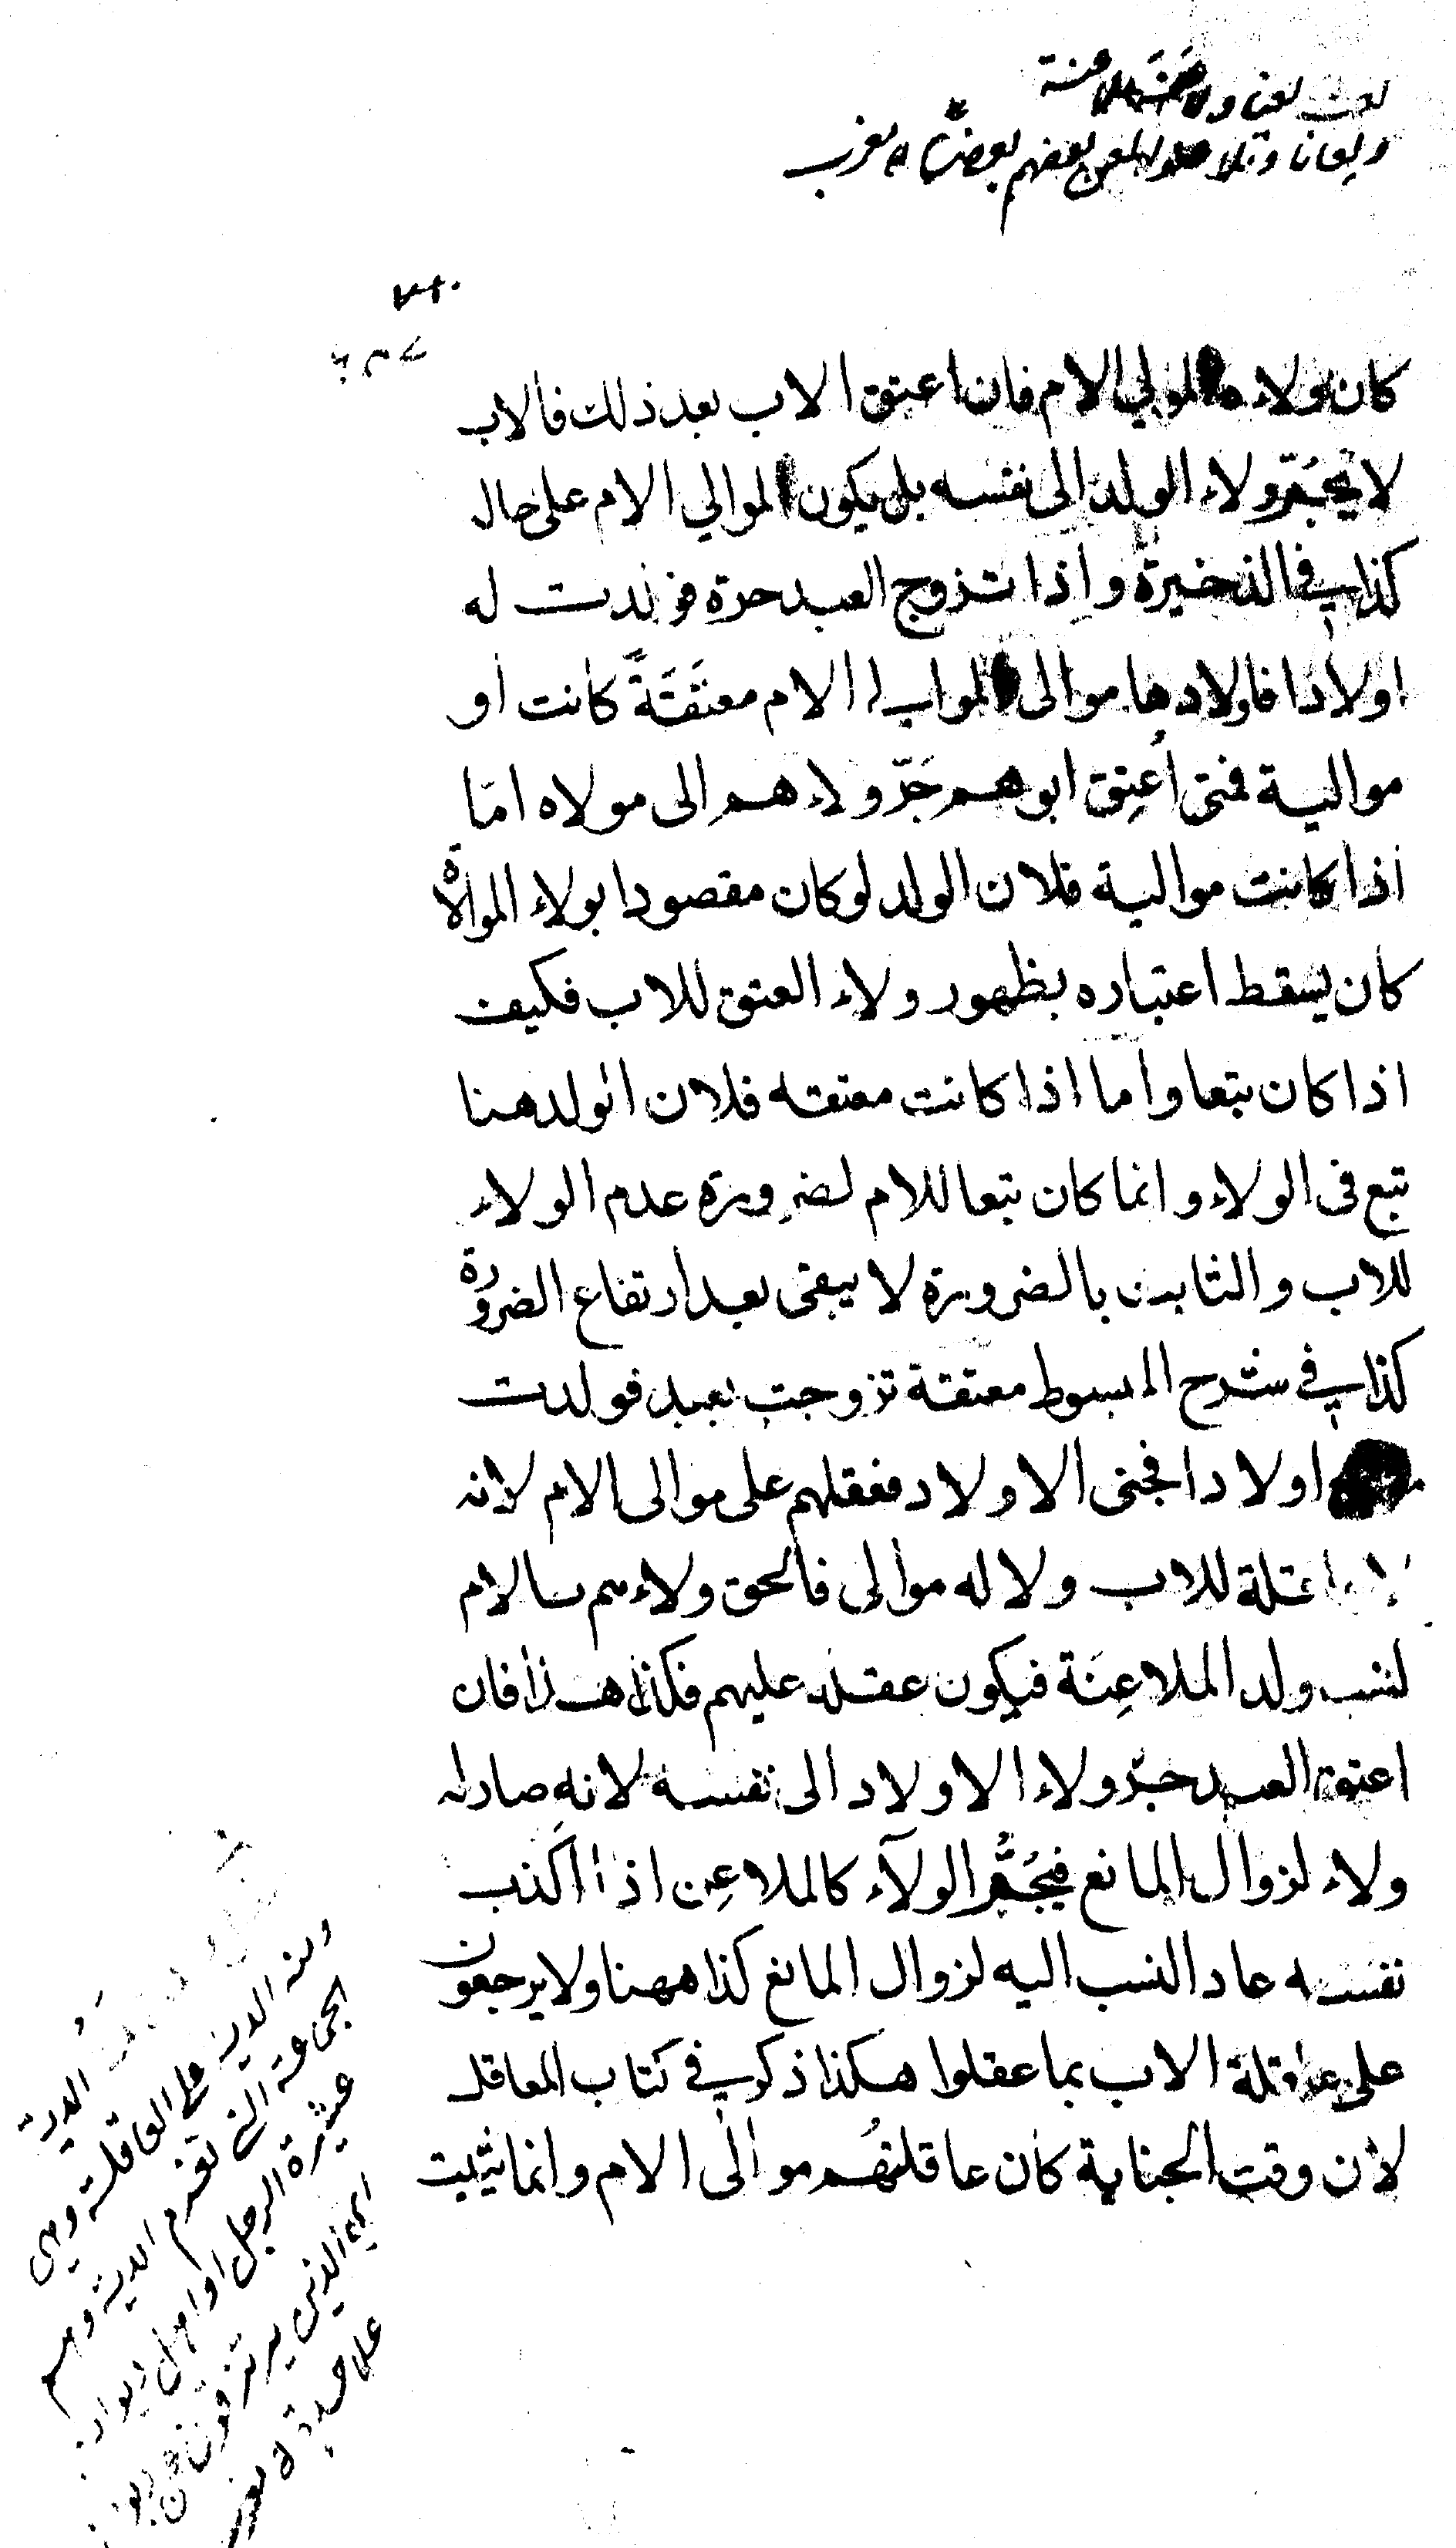 لعنه لعنا ولاعنه ملاعنة
ولعانا وتلاعنوا لعن بعضهم بعضا مغرب
كان ولاءه لموالي الام فان اعتق الاب بعد ذلك فالاب
لا يجُرّ ولاء الولد الى نفسه بل يكون لموالي الام على حاله
كذا في الذخيرة واِذا تزوج العبد حرة فولدت له
اولادا فاولادها موالى لموالي الام معتَقَةً كانت او
موالية فمتى اُعتِق ابوهم جَرّ ولاءهم الى مولاه امّا
اذا كانت موالية فلان الولد لو كان مقصودا بولاء الموالاة
كان يسقط اعتباره بظهور ولاء العتق للاب فكيف
اذا كان تبعا واما اذا كانت معتقه فلان الولد هنا
تبع فى الولاء وانما كان تبعا للام لضرورة عدم الولاء
للاب والثابت بالضرورة لا يبقى بعد ارتفاع الضرورة
كذا في شرح المبسوط معتقة تزوجت بعبد فولدت
اولادا فجنى الاولاد فعقلهم على موالى الام لانه
لا عاقلة للاب ولا له موالى فالحق ولاءهم بالام
لنسب ولد الملاعِنَة فيكون عقله عليهم فكذا هذا فان
اعتق العبد جرّ ولاء الاولاد الى نفسه لانه صار له
ولاء لزوال المانع فيجُرُّ الولآء كالملاعِن اذا اكذب
نفسه عاد النسب اليه لزوال المانع كذا ههنا ولا يرجعون
على عاقلة الاب بما عقلوا هكذا ذكر في كتاب المعاقل
لان وقت الجناية كان عاقلتهُم موالى الام وانما يثبت
الدية
ومنه الدية على العاقلة وهي
الجماعة التي تغرم الدية وهم
عشيرة الرجل او اهل ديوانه
اي الذين يرتزقون من ديوان
على حدة مغرب